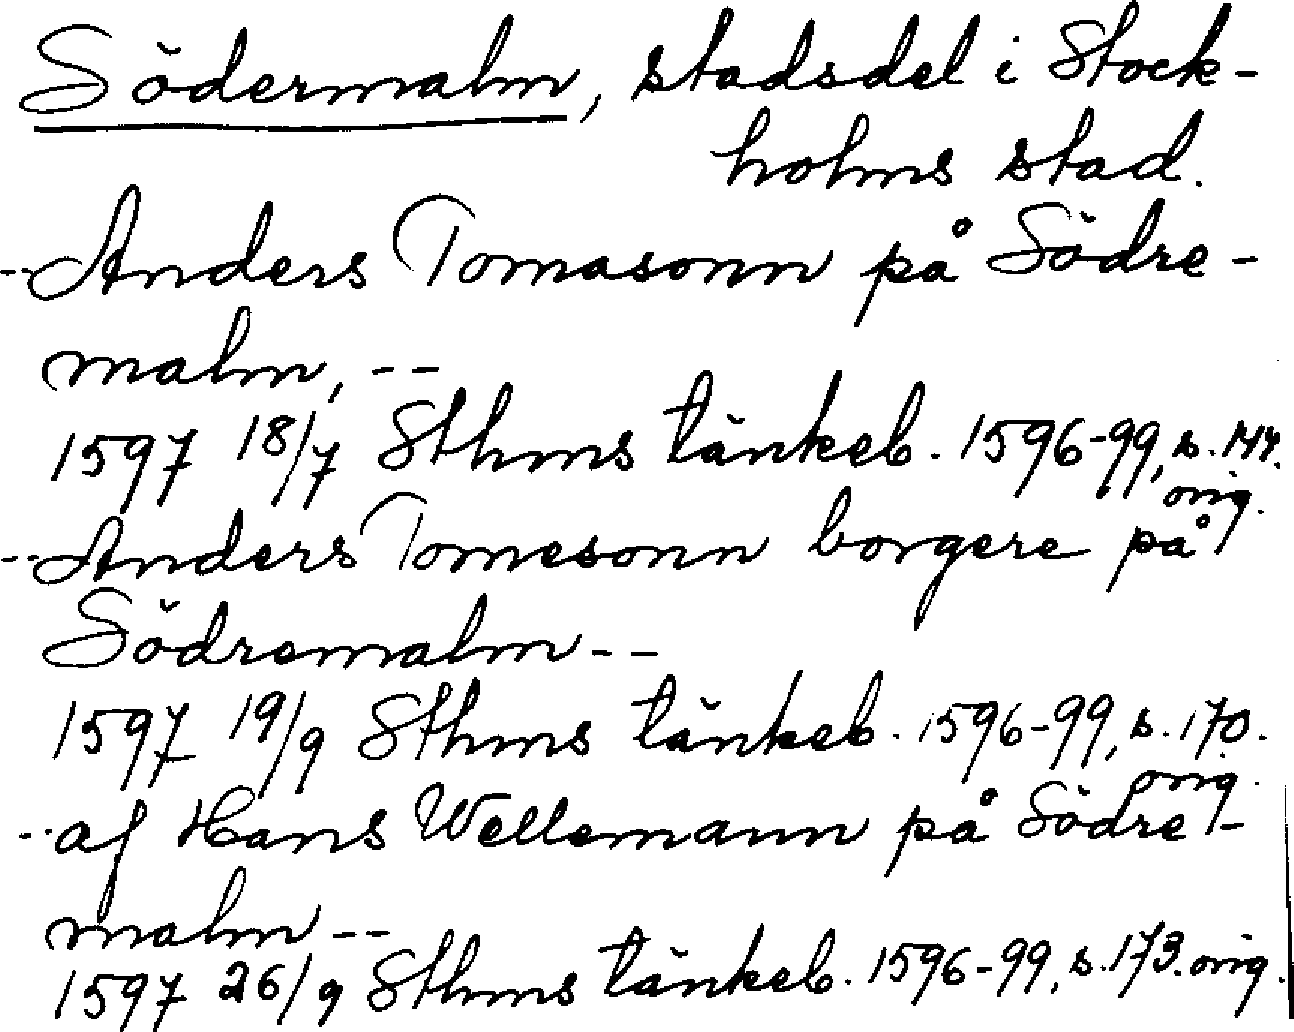 Södermalm, stadsdel i Stock-
holms stad.
--Anders Tomasonn på Södre-
malm, --
1597 18/7 Sthms tänkeb. 1596-99, s. 144.
orig.
--Anders Tomesonn borgere på
Södremalm--
1597 19/9 Sthms tänkeb. 1596-99, s. 170.
orig.
--af Hans Wellemann på Södre-
malm--
1597 26/9 Sthms tänkeb. 1596-99, s. 173. orig.